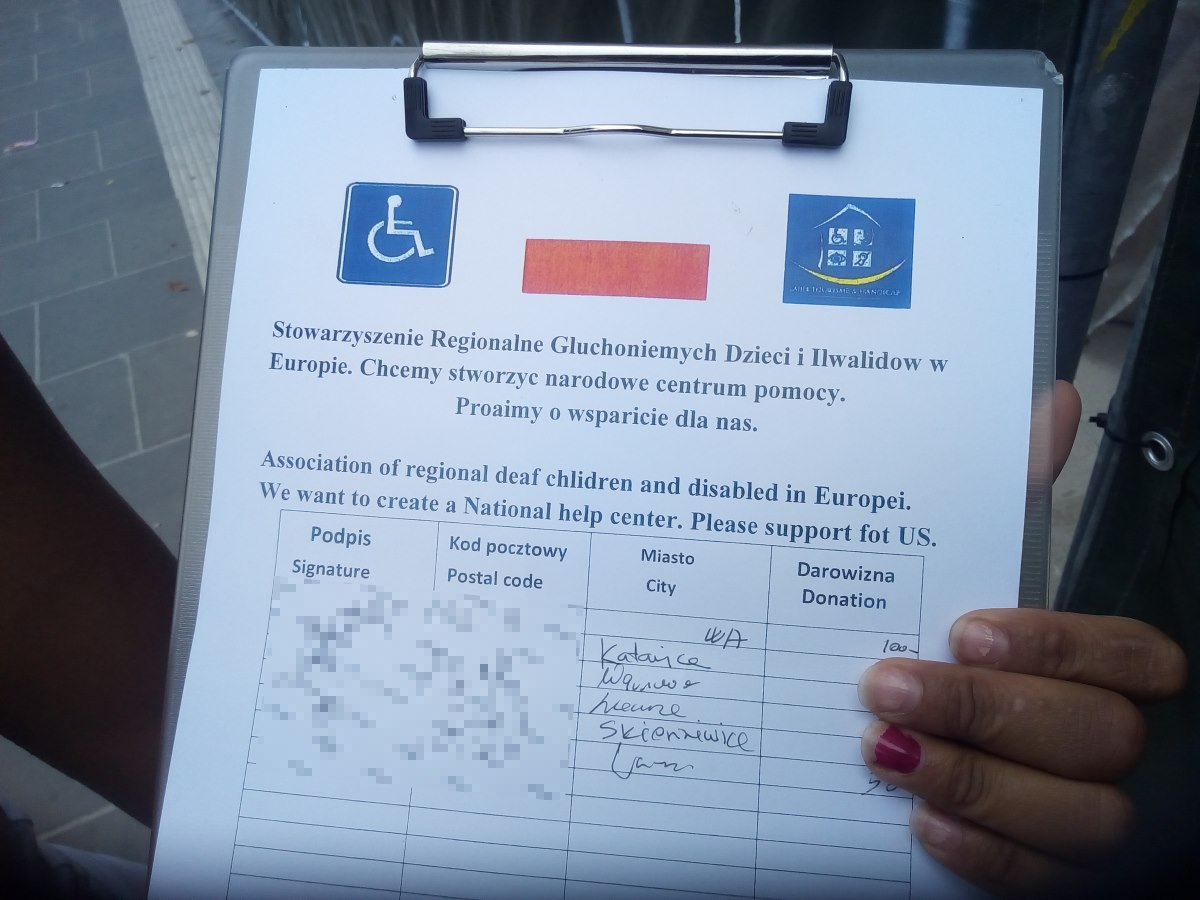 Stowarzyszenie Regionalne Gluchoniemych Dzieci i Ilwalidow w
Europie. Chcemy stworzyc narodowe centrum pomocy.
Proaimy o wsparicie dla nas.
Association of regional deaf chlidren and disabled in Europei.
We want to create a National help center. Please support fot US.
Podpis Kod pocztowy Miasto Darowizna
Signature Postal code City Donation
100-
Skierniewice